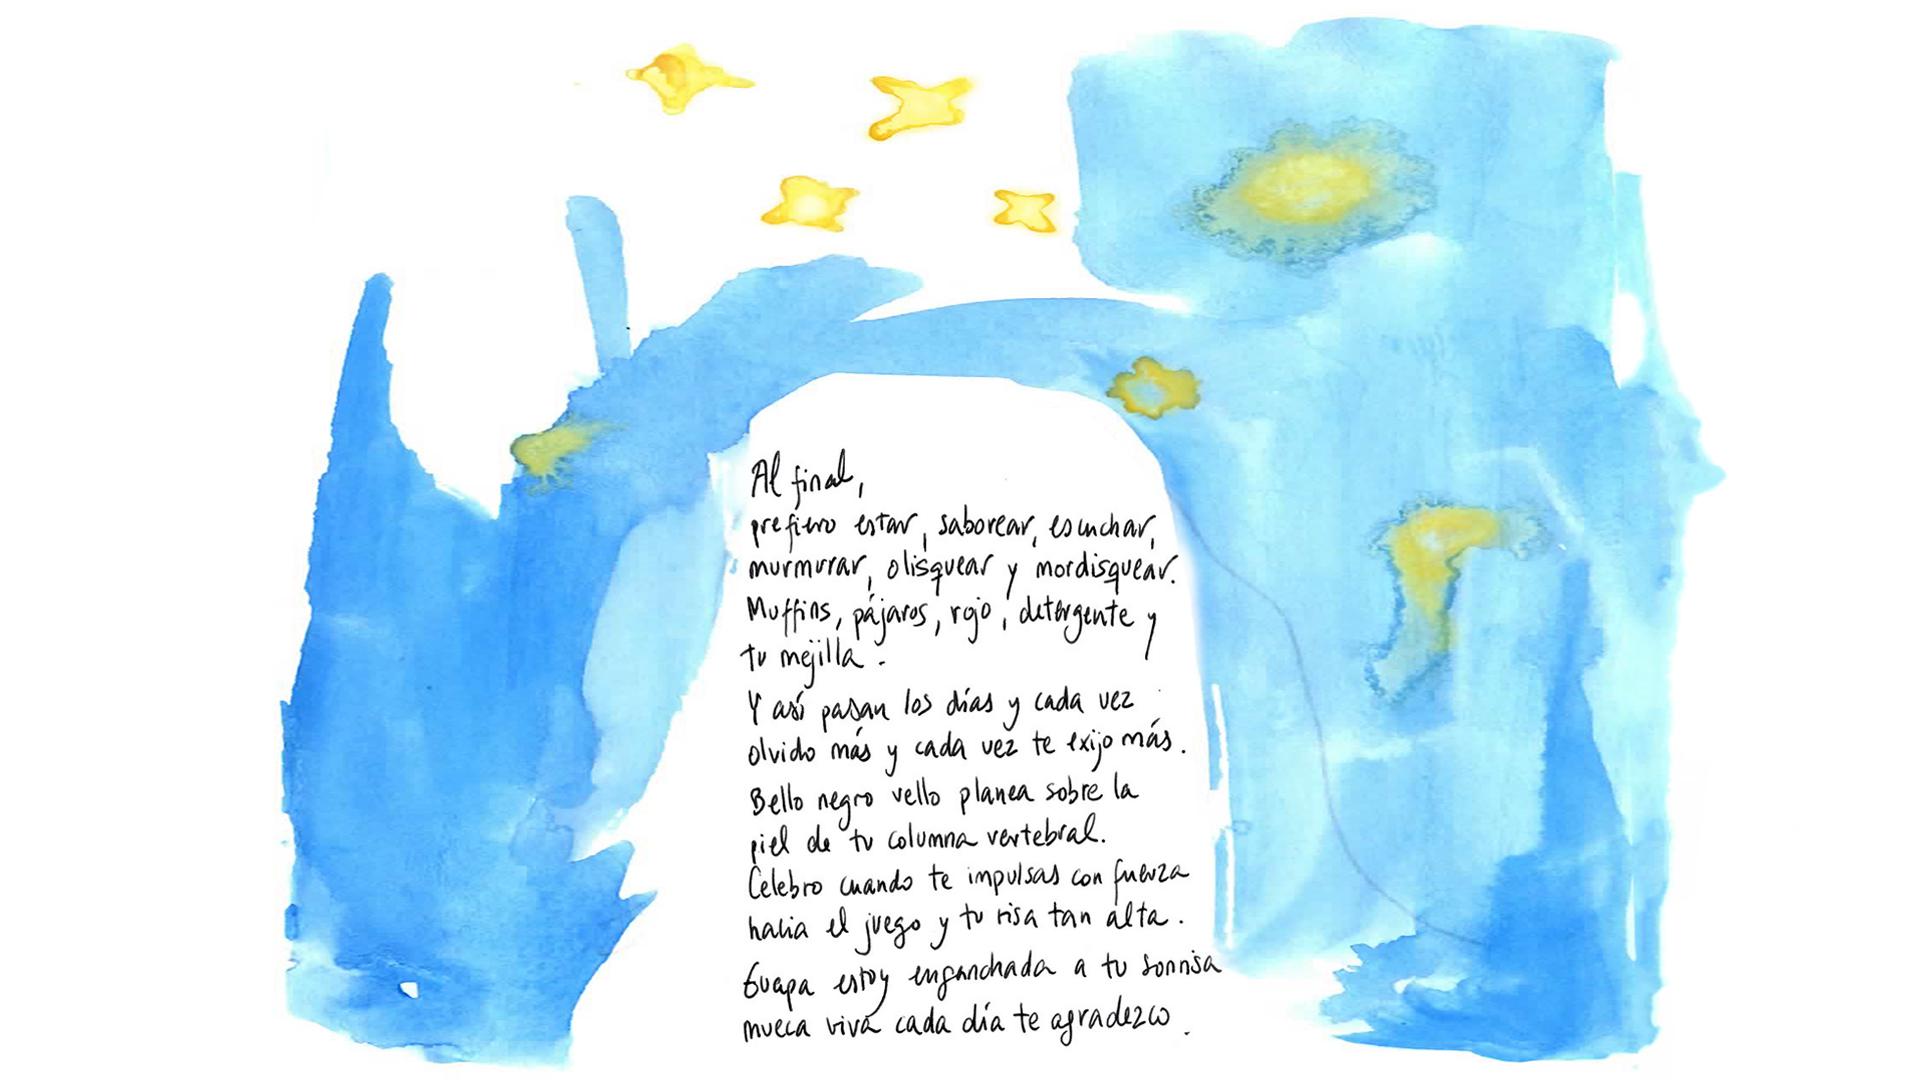 Al final,
prefiero estar, saborear, escuchar,
murmurar, olisquear y mordisquear.
Muffins, pájaros, rojo, detergente y
tu mejilla.
Y así pasan los días y cada vez
olvido más y cada vez te exijo más.
Bello negro vello planea sobre la
piel de tu columna vertebral.
Celebro cuando te impulsas con fuerza
hacia el juego y tu risa tan alta.
Guapa estoy enganchada a tu sonrisa
mueca viva cada día te agradezco.